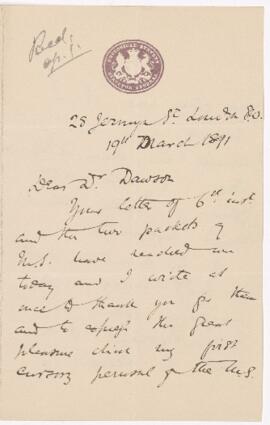 Recd.
Geological Survey
28 Jermyn St. London S.W.
19th March 1891
Dear Dr. Dawson
Your letter of 6th inst
and the two packets of
M.S. have reached me
today and I write at
once to thank you for them
and to express the great
pleasure which my first
cursory perusal of the M.S.